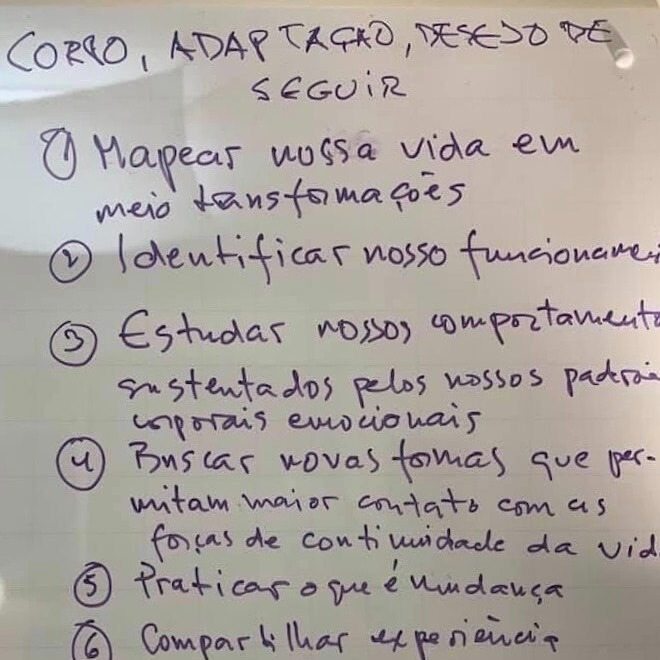 CORPO, ADAPTAÇÃO, DESEJO DE
SEGUIR
① Mapear nossa vida em
meio transformações
② Identificar nosso funcioname
③ Estudar nossos comportamento
sustentados pelos nossos padrõe
corporais emocionais
④ Buscar novas formas que per-
mitam maior contato com as
forças de continuidade da vid
⑤ Praticar o que é mudança
⑥ Compartilhar experiência